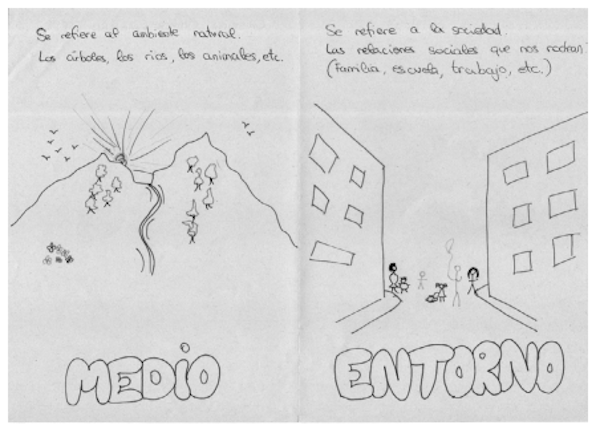 Se refiere al ambiente natural.
Los árboles, los rios, los animales, etc.
MEDiO
Se refiere a la sociedad.
Las relaciones sociales que nos rodean
(Familia, escuela, trabajo, etc.)
ENTORNO